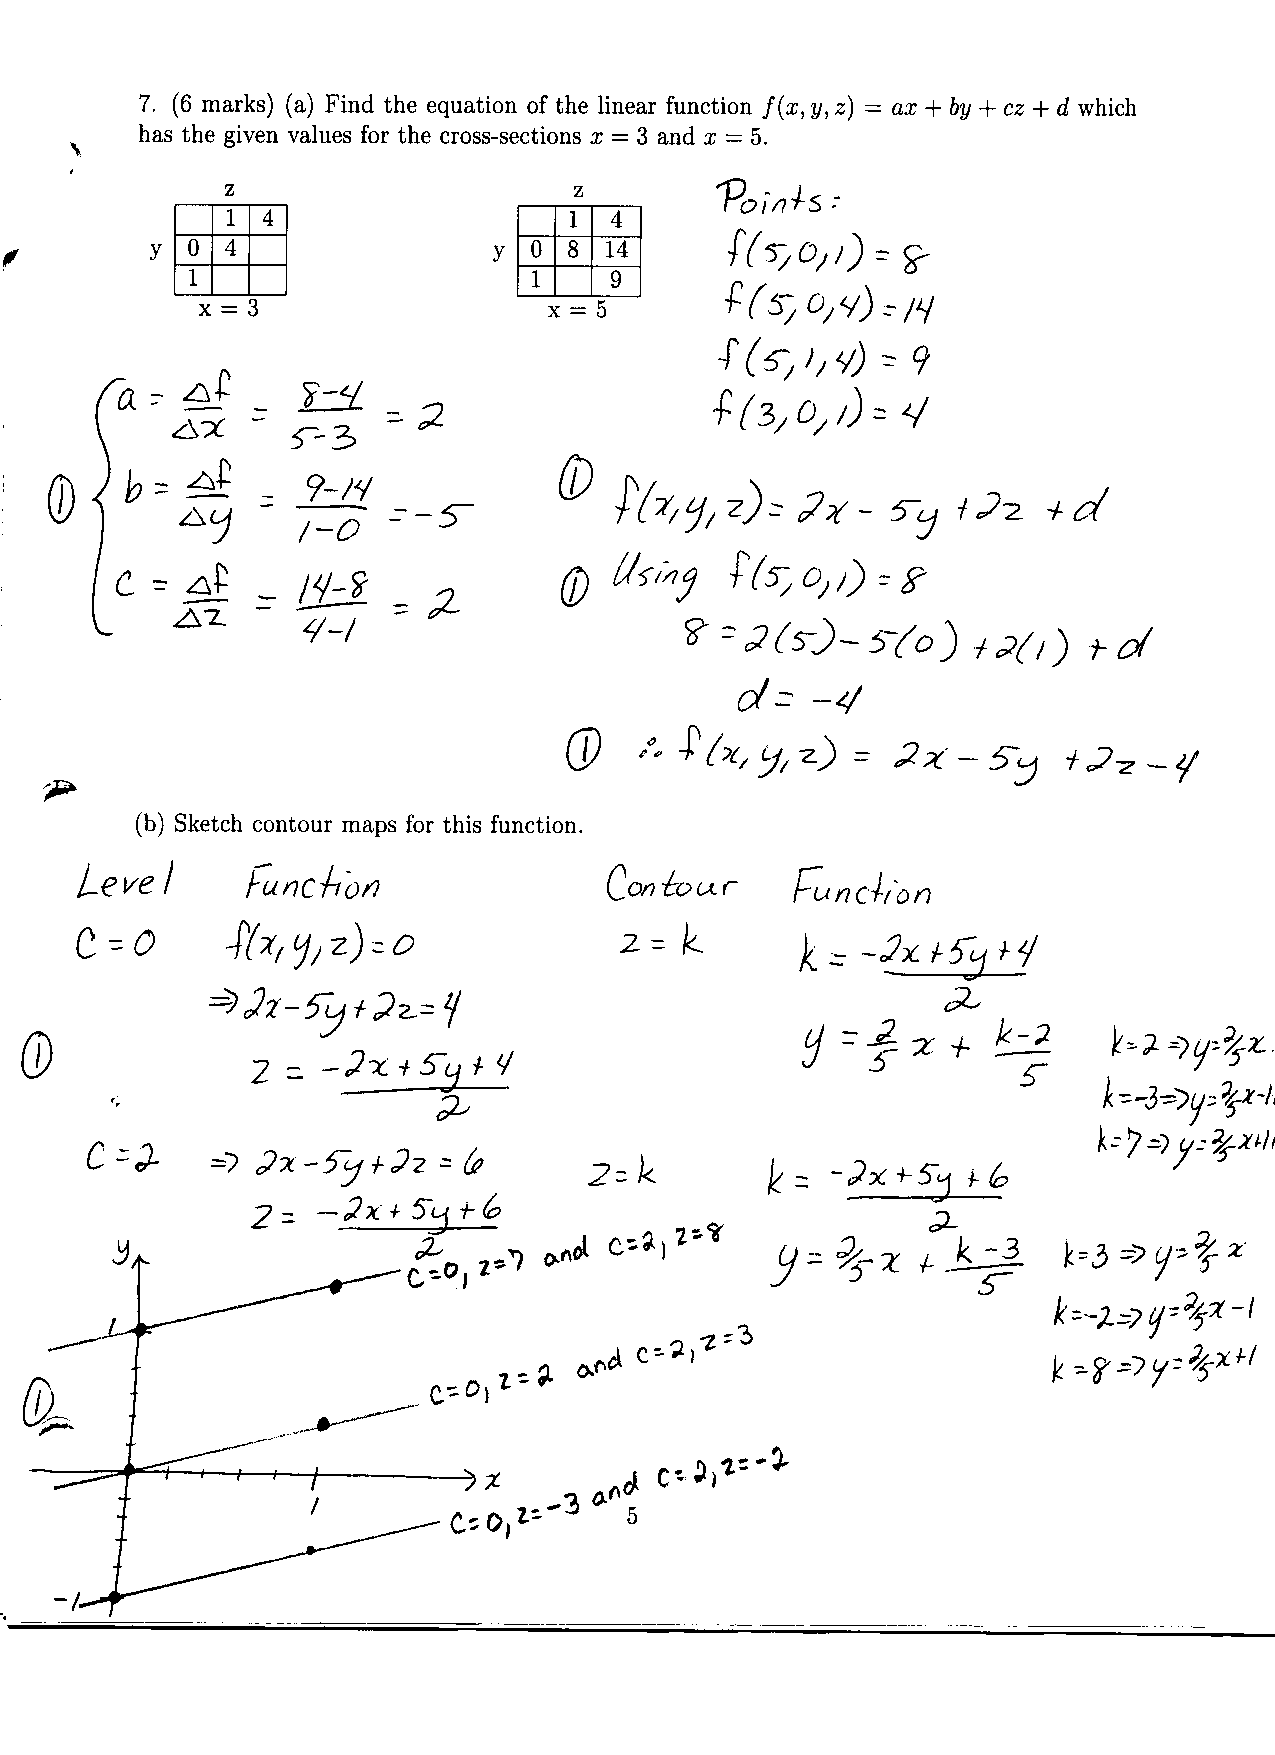 7. (6 marks) (a) Find the equation of the linear function f(x, y, z) = ax + by + cz + d which
has the given values for the cross-sections x = 3 and x = 5.
z
1 4
y 0 4
1
x = 3
z
1 4
y 0 8 14
1 9
x = 5
Points:
f(5,0,1) = 8
f(5,0,4) = 14
f(5,1,4) = 9
f(3,0,1) = 4
① a = Δf/Δx = (8-4)/(5-3) = 2
b = Δf/Δy = (9-14)/(1-0) = -5
c = Δf/Δz = (14-8)/(4-1) = 2
① f(x,y,z) = 2x - 5y + 2z + d
① Using f(5,0,1) = 8
8 = 2(5) - 5(0) + 2(1) + d
d = -4
① ∴ f(x,y,z) = 2x - 5y + 2z - 4
(b) Sketch contour maps for this function.
Level Function Contour Function
C = 0 f(x,y,z) = 0 z = k k = (-2x + 5y + 4)/2
⇒ 2x - 5y + 2z = 4
① z = (-2x + 5y + 4)/2
y = 2/5 x + (k-2)/5
k=2 ⇒ y=2/5x
k=-3 ⇒ y=2/5x-1
k=7 ⇒ y=2/5x+1
C = 2 ⇒ 2x - 5y + 2z = 6 z = k k = (-2x + 5y + 6)/2
z = (-2x + 5y + 6)/2
y = 2/5 x + (k-3)/5
k=3 ⇒ y=2/5 x
k=-2 ⇒ y=2/5x-1
k=8 ⇒ y=2/5x+1
y
C=0, z=7 and C=2, z=8
1
C=0, z=2 and C=2, z=3
①
x
1
C=0, z=-3 and C=2, z=-2
-1
5